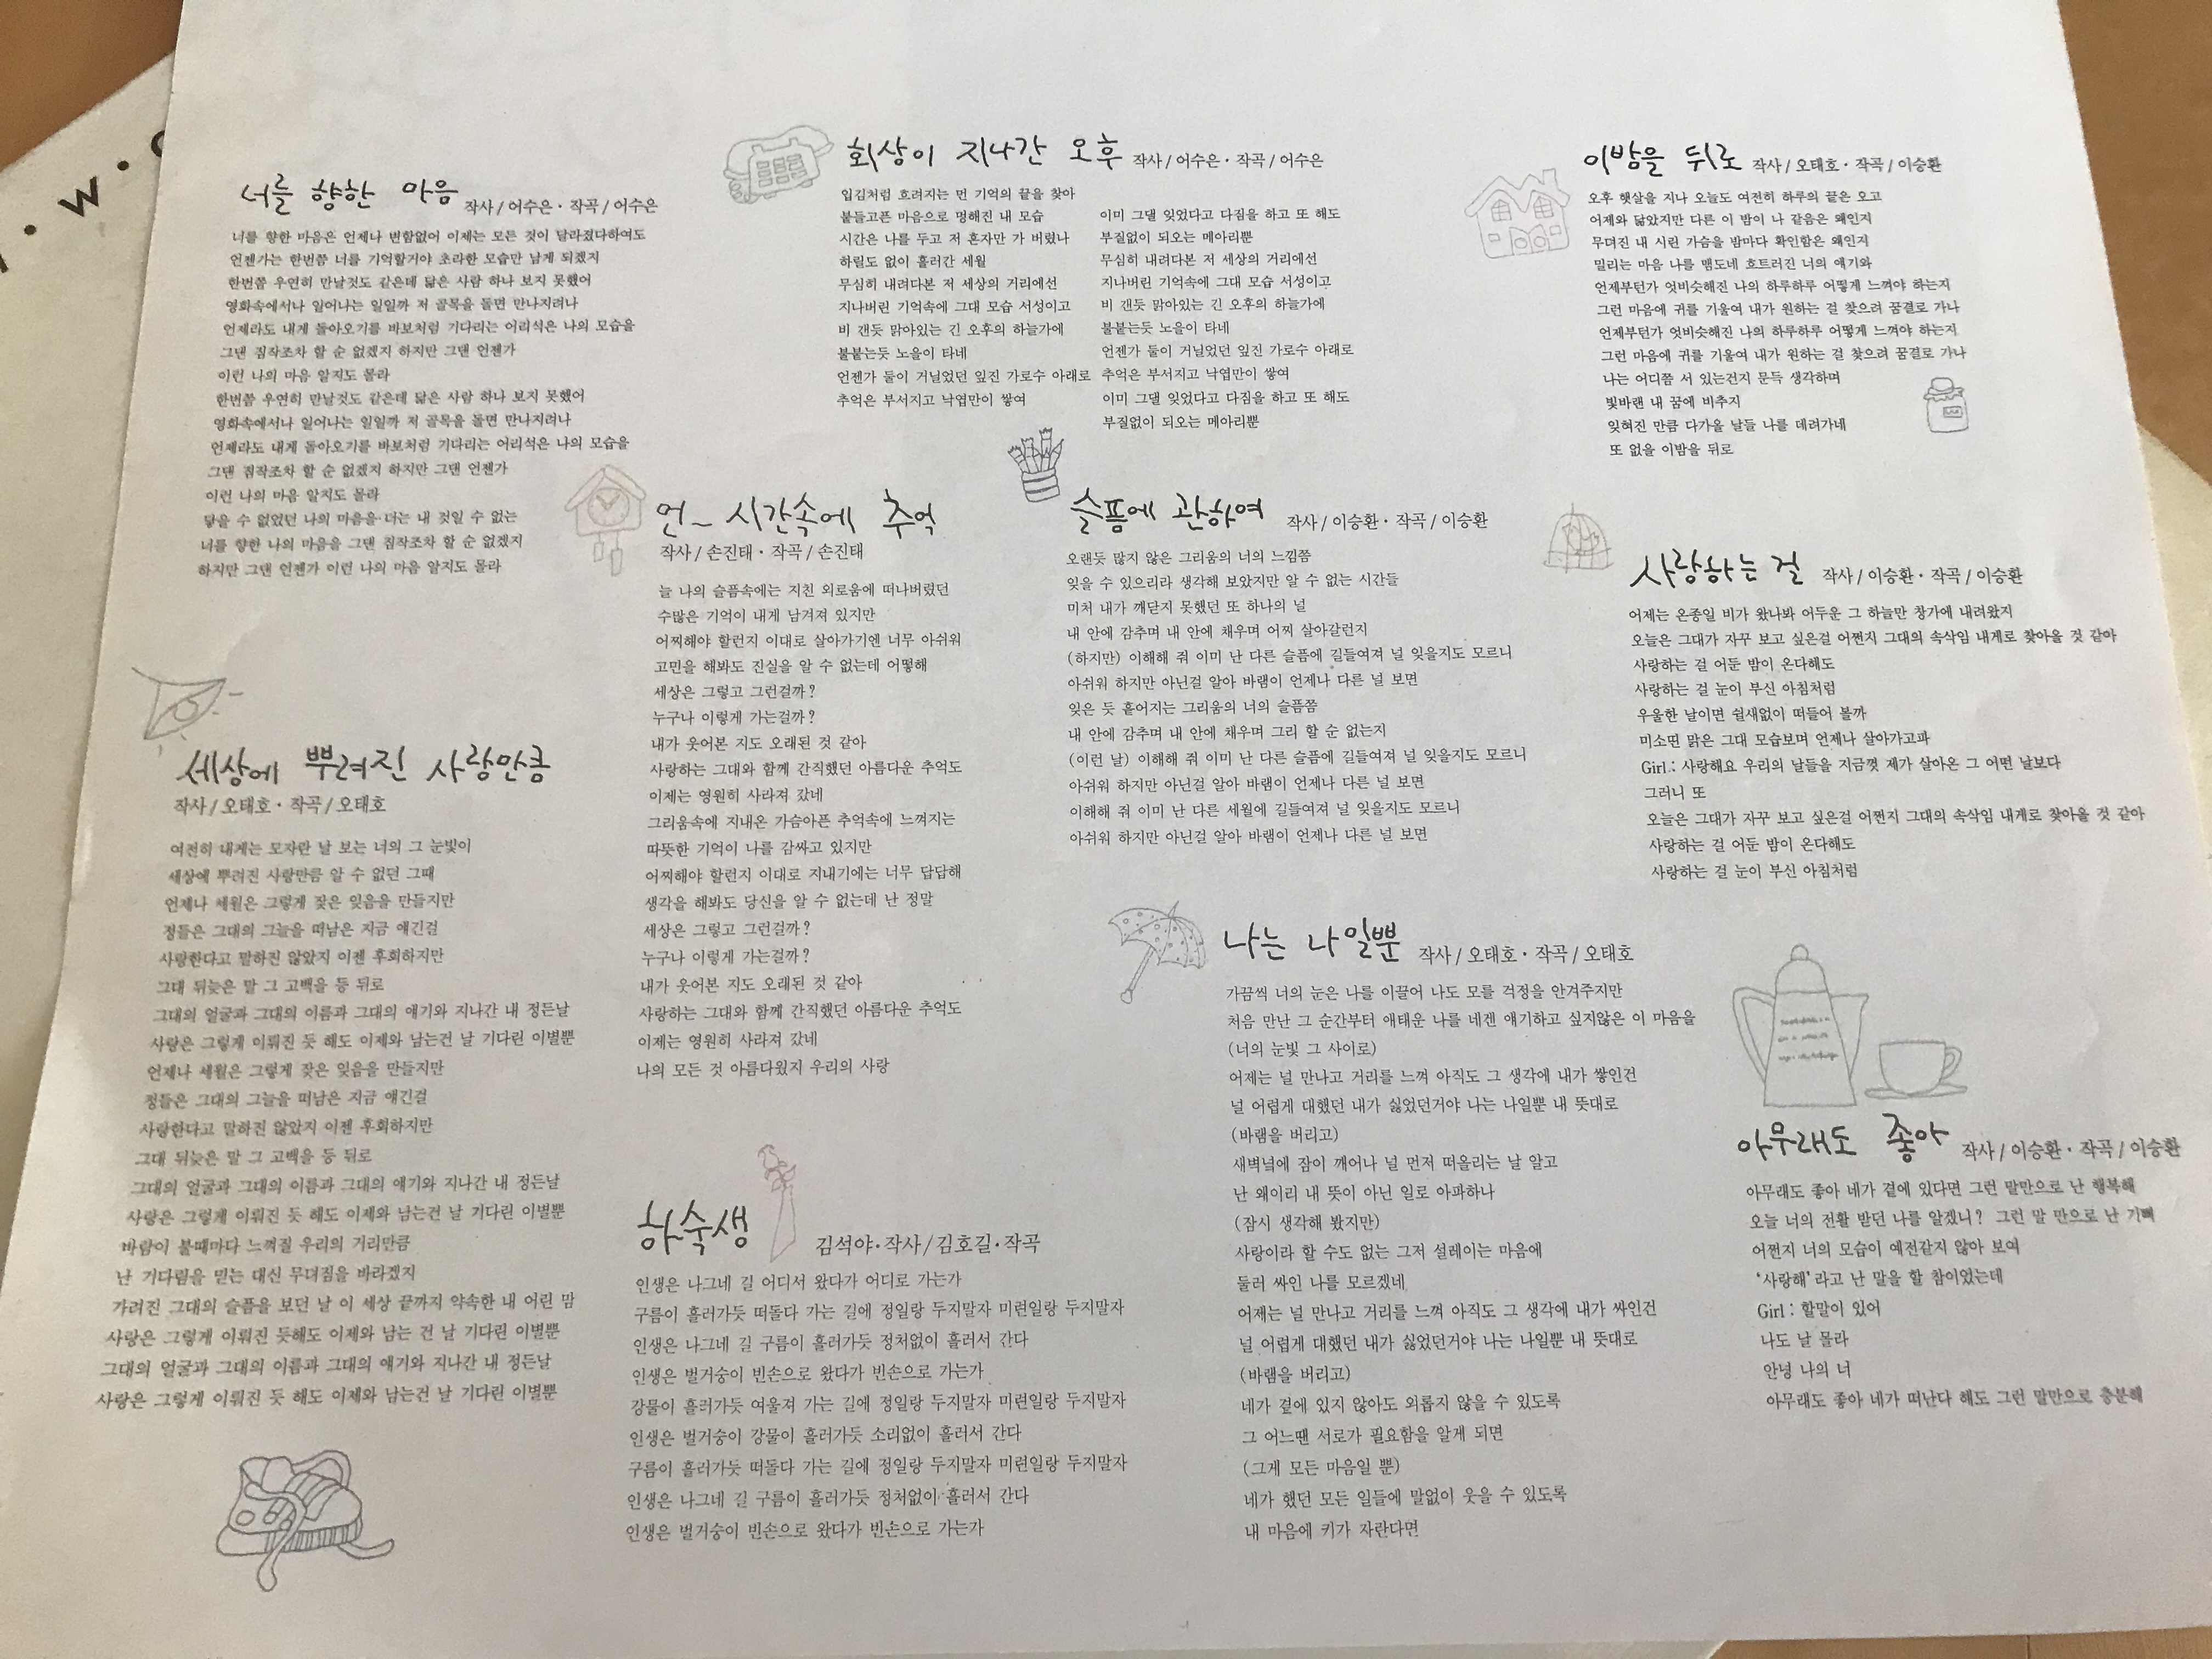 W.
너를 향한 마음
작사/어수은·작곡/어수은
너를 향한 마음은 언제나 변함없어 이제는 모든 것이 달라졌다하여도
언젠가는 한번쯤 너를 기억할거야 초라한 모습만 남게 되겠지
한번쯤 우연히 만날것도 같은데 닮은 사람 하나 보지 못했어
영화속에서나 일어나는 일일까 저 골목을 돌면 만나지려나
언제라도 내게 돌아오기를 바보처럼 기다리는 어리석은 나의 모습을
그댄 짐작조차 할 순 없겠지 하지만 그댄 언젠가
이런 나의 마음 알지도 몰라
한번쯤 우연히 만날것도 같은데 닮은 사람 하나 보지 못했어
영화속에서나 일어나는 일일까 저 골목을 돌면 만나지려나
언제라도 내게 돌아오기를 바보처럼 기다리는 어리석은 나의 모습을
그댄 짐작조차 할 순 없겠지 하지만 그댄 언젠가
이런 나의 마음 알지도 몰라
닿을 수 없었던 나의 마음을 너는 내 것일 수 없는
너를 향한 나의 마음을 그댄 짐작조차 할 순 없겠지
하지만 그댄 언젠가 이런 나의 마음 알지도 몰라
세상에 뿌려진 사랑만큼
작사/오태호·작곡/오태호
여전히 내게는 모자란 날 보는 너의 그 눈빛이
세상에 뿌려진 사랑만큼 알 수 없던 그때
언제나 세월은 그렇게 잦은 잊음을 만들지만
정들은 그대의 그늘을 떠남은 지금 얘긴걸
사랑한다고 말하진 않았지 이젠 후회하지만
그대 뒤늦은 말 그 고백을 등 뒤로
그대의 얼굴과 그대의 이름과 그대의 얘기와 지나간 내 정든날
사랑은 그렇게 이뤄진 듯 해도 이제와 남는건 날 기다린 이별뿐
언제나 세월은 그렇게 잦은 잊음을 만들지만
정들은 그대의 그늘을 떠남은 지금 얘긴걸
사랑한다고 말하진 않았지 이젠 후회하지만
그대 뒤늦은 말 그 고백을 등 뒤로
그대의 얼굴과 그대의 이름과 그대의 얘기와 지나간 내 정든날
사랑은 그렇게 이뤄진 듯 해도 이제와 남는건 날 기다린 이별뿐
바람이 불때마다 느껴질 우리의 거리만큼
난 기다림을 믿는 대신 무뎌짐을 바라겠지
가려진 그대의 슬픔을 보던 날 이 세상 끝까지 약속한 내 어린 맘
사랑은 그렇게 이뤄진 듯해도 이제와 남는 건 날 기다린 이별뿐
그대의 얼굴과 그대의 이름과 그대의 얘기와 지나간 내 정든날
사랑은 그렇게 이뤄진 듯 해도 이제와 남는건 날 기다린 이별뿐
회상이 지나간 오후
작사/어수은·작곡/어수은
입김처럼 흐려지는 먼 기억의 끝을 찾아
붙들고픈 마음으로 멍해진 내 모습
시간은 나를 두고 저 혼자만 가 버렸나
하릴도 없이 흘러간 세월
무심히 내려다본 저 세상의 거리에선
지나버린 기억속에 그대 모습 서성이고
비 갠듯 맑아있는 긴 오후의 하늘가에
불붙는듯 노을이 타네
언젠가 둘이 거닐었던 잎진 가로수 아래로
추억은 부서지고 낙엽만이 쌓여
이미 그댈 잊었다고 다짐을 하고 또 해도
부질없이 되오는 메아리뿐
무심히 내려다본 저 세상의 거리에선
지나버린 기억속에 그대 모습 서성이고
비 갠듯 맑아있는 긴 오후의 하늘가에
불붙는듯 노을이 타네
언젠가 둘이 거닐었던 잎진 가로수 아래로
추억은 부서지고 낙엽만이 쌓여
이미 그댈 잊었다고 다짐을 하고 또 해도
부질없이 되오는 메아리뿐
언~ 시간속에 추억
작사/손진태·작곡/손진태
늘 나의 슬픔속에는 지친 외로움에 떠나버렸던
수많은 기억이 내게 남겨져 있지만
어찌해야 할런지 이대로 살아가기엔 너무 아쉬워
고민을 해봐도 진실을 알 수 없는데 어떻해
세상은 그렇고 그런걸까?
누구나 이렇게 가는걸까?
내가 웃어본 지도 오래된 것 같아
사랑하는 그대와 함께 간직했던 아름다운 추억도
이제는 영원히 사라져 갔네
그리움속에 지내온 가슴아픈 추억속에 느껴지는
따뜻한 기억이 나를 감싸고 있지만
어찌해야 할런지 이대로 지내기에는 너무 답답해
생각을 해봐도 당신을 알 수 없는데 난 정말
세상은 그렇고 그런걸까?
누구나 이렇게 가는걸까?
내가 웃어본 지도 오래된 것 같아
사랑하는 그대와 함께 간직했던 아름다운 추억도
이제는 영원히 사라져 갔네
나의 모든 것 아름다웠지 우리의 사랑
하숙생
김석야·작사/김호길·작곡
인생은 나그네 길 어디서 왔다가 어디로 가는가
구름이 흘러가듯 떠돌다 가는 길에 정일랑 두지말자 미련일랑 두지말자
인생은 나그네 길 구름이 흘러가듯 정처없이 흘러서 간다
인생은 벌거숭이 빈손으로 왔다가 빈손으로 가는가
강물이 흘러가듯 여울져 가는 길에 정일랑 두지말자 미련일랑 두지말자
인생은 벌거숭이 강물이 흘러가듯 소리없이 흘러서 간다
구름이 흘러가듯 떠돌다 가는 길에 정일랑 두지말자 미련일랑 두지말자
인생은 나그네 길 구름이 흘러가듯 정처없이 흘러서 간다
인생은 벌거숭이 빈손으로 왔다가 빈손으로 가는가
슬픔에 관하여
작사/이승환·작곡/이승환
오랜듯 많지 않은 그리움의 너의 느낌쯤
잊을 수 있으리라 생각해 보았지만 알 수 없는 시간들
미처 내가 깨닫지 못했던 또 하나의 널
내 안에 감추며 내 안에 채우며 어찌 살아갈런지
(하지만) 이해해 줘 이미 난 다른 슬픔에 길들여져 널 잊을지도 모르니
아쉬워 하지만 아닌걸 알아 바램이 언제나 다른 널 보면
잊은 듯 흩어지는 그리움의 너의 슬픔쯤
내 안에 감추며 내 안에 채우며 그리 할 순 없는지
(이런 날) 이해해 줘 이미 난 다른 슬픔에 길들여져 널 잊을지도 모르니
아쉬워 하지만 아닌걸 알아 바램이 언제나 다른 널 보면
이해해 줘 이미 난 다른 세월에 길들여져 널 잊을지도 모르니
아쉬워 하지만 아닌걸 알아 바램이 언제나 다른 널 보면
나는 나일뿐
작사/오태호·작곡/오태호
가끔씩 너의 눈은 나를 이끌어 나도 모를 걱정을 안겨주지만
처음 만난 그 순간부터 애태운 나를 네겐 얘기하고 싶지않은 이 마음을
(너의 눈빛 그 사이로)
어제는 널 만나고 거리를 느껴 아직도 그 생각에 내가 쌓인건
널 어렵게 대했던 내가 싫었던거야 나는 나일뿐 내 뜻대로
(바램을 버리고)
새벽녘에 잠이 깨어나 널 먼저 떠올리는 날 알고
난 왜이리 내 뜻이 아닌 일로 아파하나
(잠시 생각해 봤지만)
사랑이라 할 수도 없는 그저 설레이는 마음에
둘러 싸인 나를 모르겠네
어제는 널 만나고 거리를 느껴 아직도 그 생각에 내가 싸인건
널 어렵게 대했던 내가 싫었던거야 나는 나일뿐 내 뜻대로
(바램을 버리고)
네가 곁에 있지 않아도 외롭지 않을 수 있도록
그 어느땐 서로가 필요함을 알게 되면
(그게 모든 마음일 뿐)
네가 했던 모든 일들에 말없이 웃을 수 있도록
내 마음에 키가 자란다면
이밤을 뒤로
작사/오태호·작곡/이승환
오후 햇살을 지나 오늘도 여전히 하루의 끝은 오고
어제와 닮았지만 다른 이 밤이 나 같음은 왜인지
무뎌진 내 시린 가슴을 밤마다 확인함은 왜인지
밀리는 마음 나를 맴도네 흐트러진 너의 얘기와
언제부턴가 엇비슷해진 나의 하루하루 어떻게 느껴야 하는지
그런 마음에 귀를 기울여 내가 원하는 걸 찾으려 꿈결로 가나
언제부턴가 엇비슷해진 나의 하루하루 어떻게 느껴야 하는지
그런 마음에 귀를 기울여 내가 원하는 걸 찾으려 꿈결로 가나
나는 어디쯤 서 있는건지 문득 생각하며
빛바랜 내 꿈에 비추지
잊혀진 만큼 다가올 날들 나를 데려가네
또 없을 이밤을 뒤로
사랑하는 걸
작사/이승환·작곡/이승환
어제는 온종일 비가 왔나봐 어두운 그 하늘만 창가에 내려왔지
오늘은 그대가 자꾸 보고 싶은걸 어쩐지 그대의 속삭임 내게로 찾아올 것 같아
사랑하는 걸 어둔 밤이 온다해도
사랑하는 걸 눈이 부신 아침처럼
우울한 날이면 쉴새없이 떠들어 볼까
미소띤 맑은 그대 모습보며 언제나 살아가고파
Girl.: 사랑해요 우리의 날들을 지금껏 제가 살아온 그 어떤 날보다
그러니 또
오늘은 그대가 자꾸 보고 싶은걸 어쩐지 그대의 속삭임 내게로 찾아올 것 같아
사랑하는 걸 어둔 밤이 온다해도
사랑하는 걸 눈이 부신 아침처럼
아무래도 좋아
작사/이승환·작곡/이승환
아무래도 좋아 네가 곁에 있다면 그런 말만으로 난 행복해
오늘 너의 전활 받던 나를 알겠니? 그런 말 만으로 난 기뻐
어쩐지 너의 모습이 예전같지 않아 보여
'사랑해'라고 난 말을 할 참이었는데
Girl : 할말이 있어
나도 날 몰라
안녕 나의 너
아무래도 좋아 네가 떠난다 해도 그런 말만으로 충분해